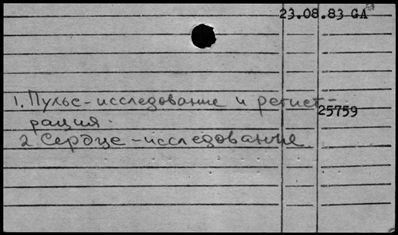 23.08.83 GA
1. Пульс-исследование и регист-
25759
рация.
2. Сердце-исследование